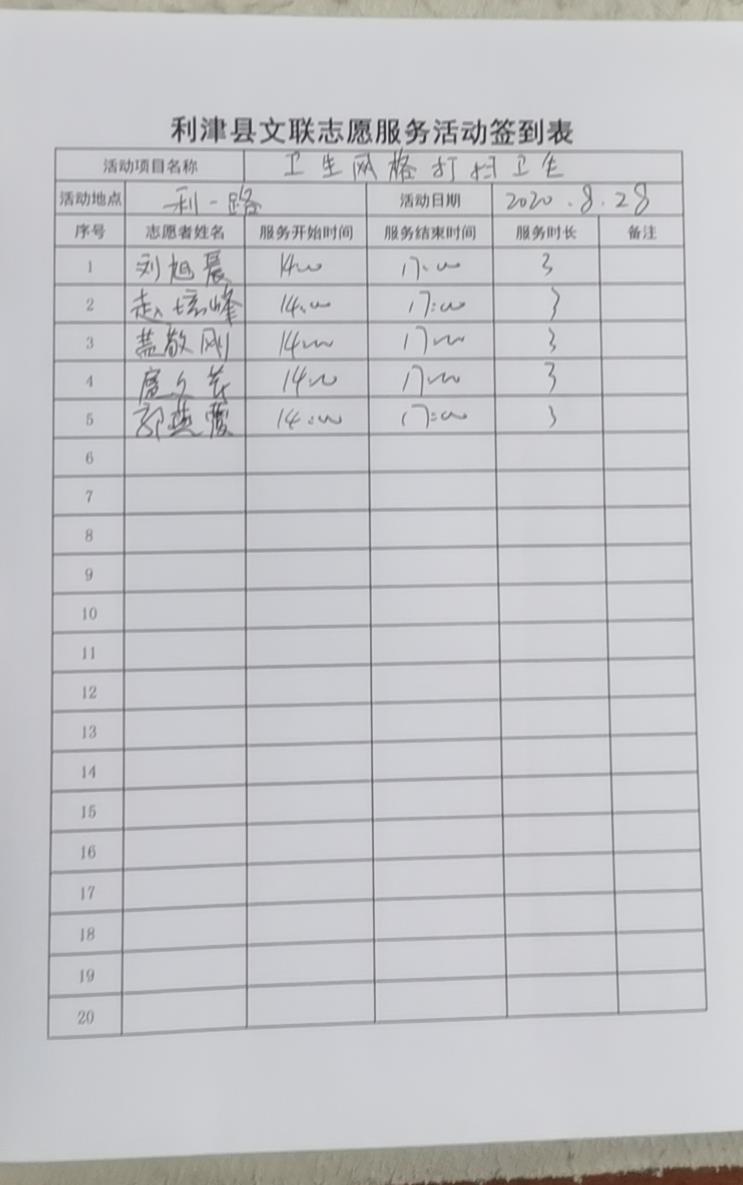 利津县文联志愿服务活动签到表
活动项目名称 卫生网格打扫卫生
活动地点 利一路 活动日期 2020.8.28
序号 志愿者姓名 服务开始时间 服务结束时间 服务时长 备注
1 刘旭晨 14:00 17:00 3
2 赵培峰 14:00 17:00 3
3 盖敬刚 14:00 17:00 3
4 14:00 17:00 3
5 郭燕霞 14:00 17:00 3
6
7
8
9
10
11
12
13
14
15
16
17
18
19
20